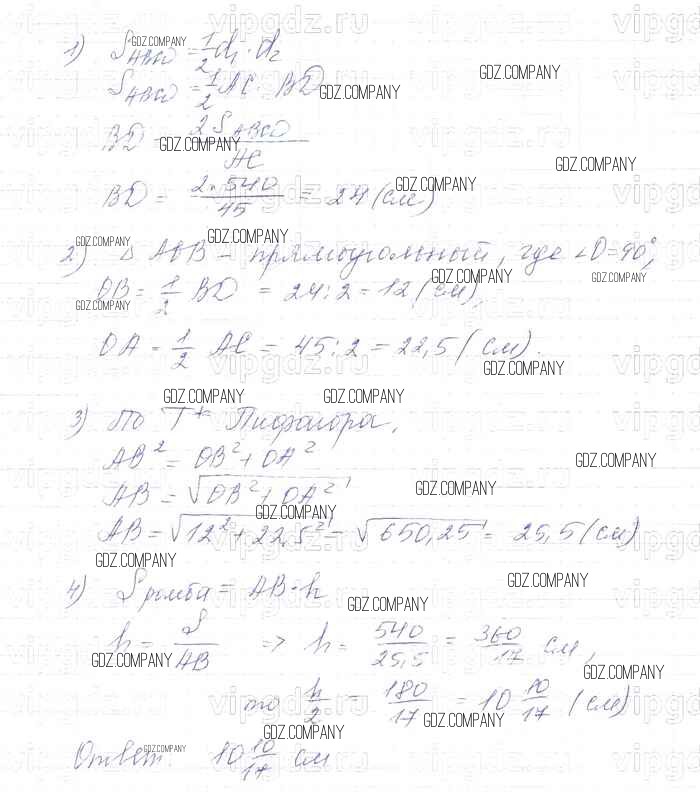 1) S_ABCD = 1/2 d₁ · d₂
S_ABCD = 1/2 AC · BD
BD = 2·S_ABCD / AC
BD = 2·540 / 45 = 24 (см)
2) △ AOB – прямоугольный, где ∠O=90°,
OB = 1/2 BD = 24:2 = 12 (см),
OA = 1/2 AC = 45:2 = 22,5 (см).
3) По Т* Пифагора,
AB² = OB² + OA²
AB = √(OB² + OA²)
AB = √(12² + 22,5²) = √650,25 = 25,5 (см)
4) S ромба = AB·h
h = S / AB => h = 540 / 25,5 = 360 / 17 см,
то h/2 = 180/17 = 10 10/17 (см)
Ответ: 10 10/17 см
GDZ.COMPANY
vipgdz.ru